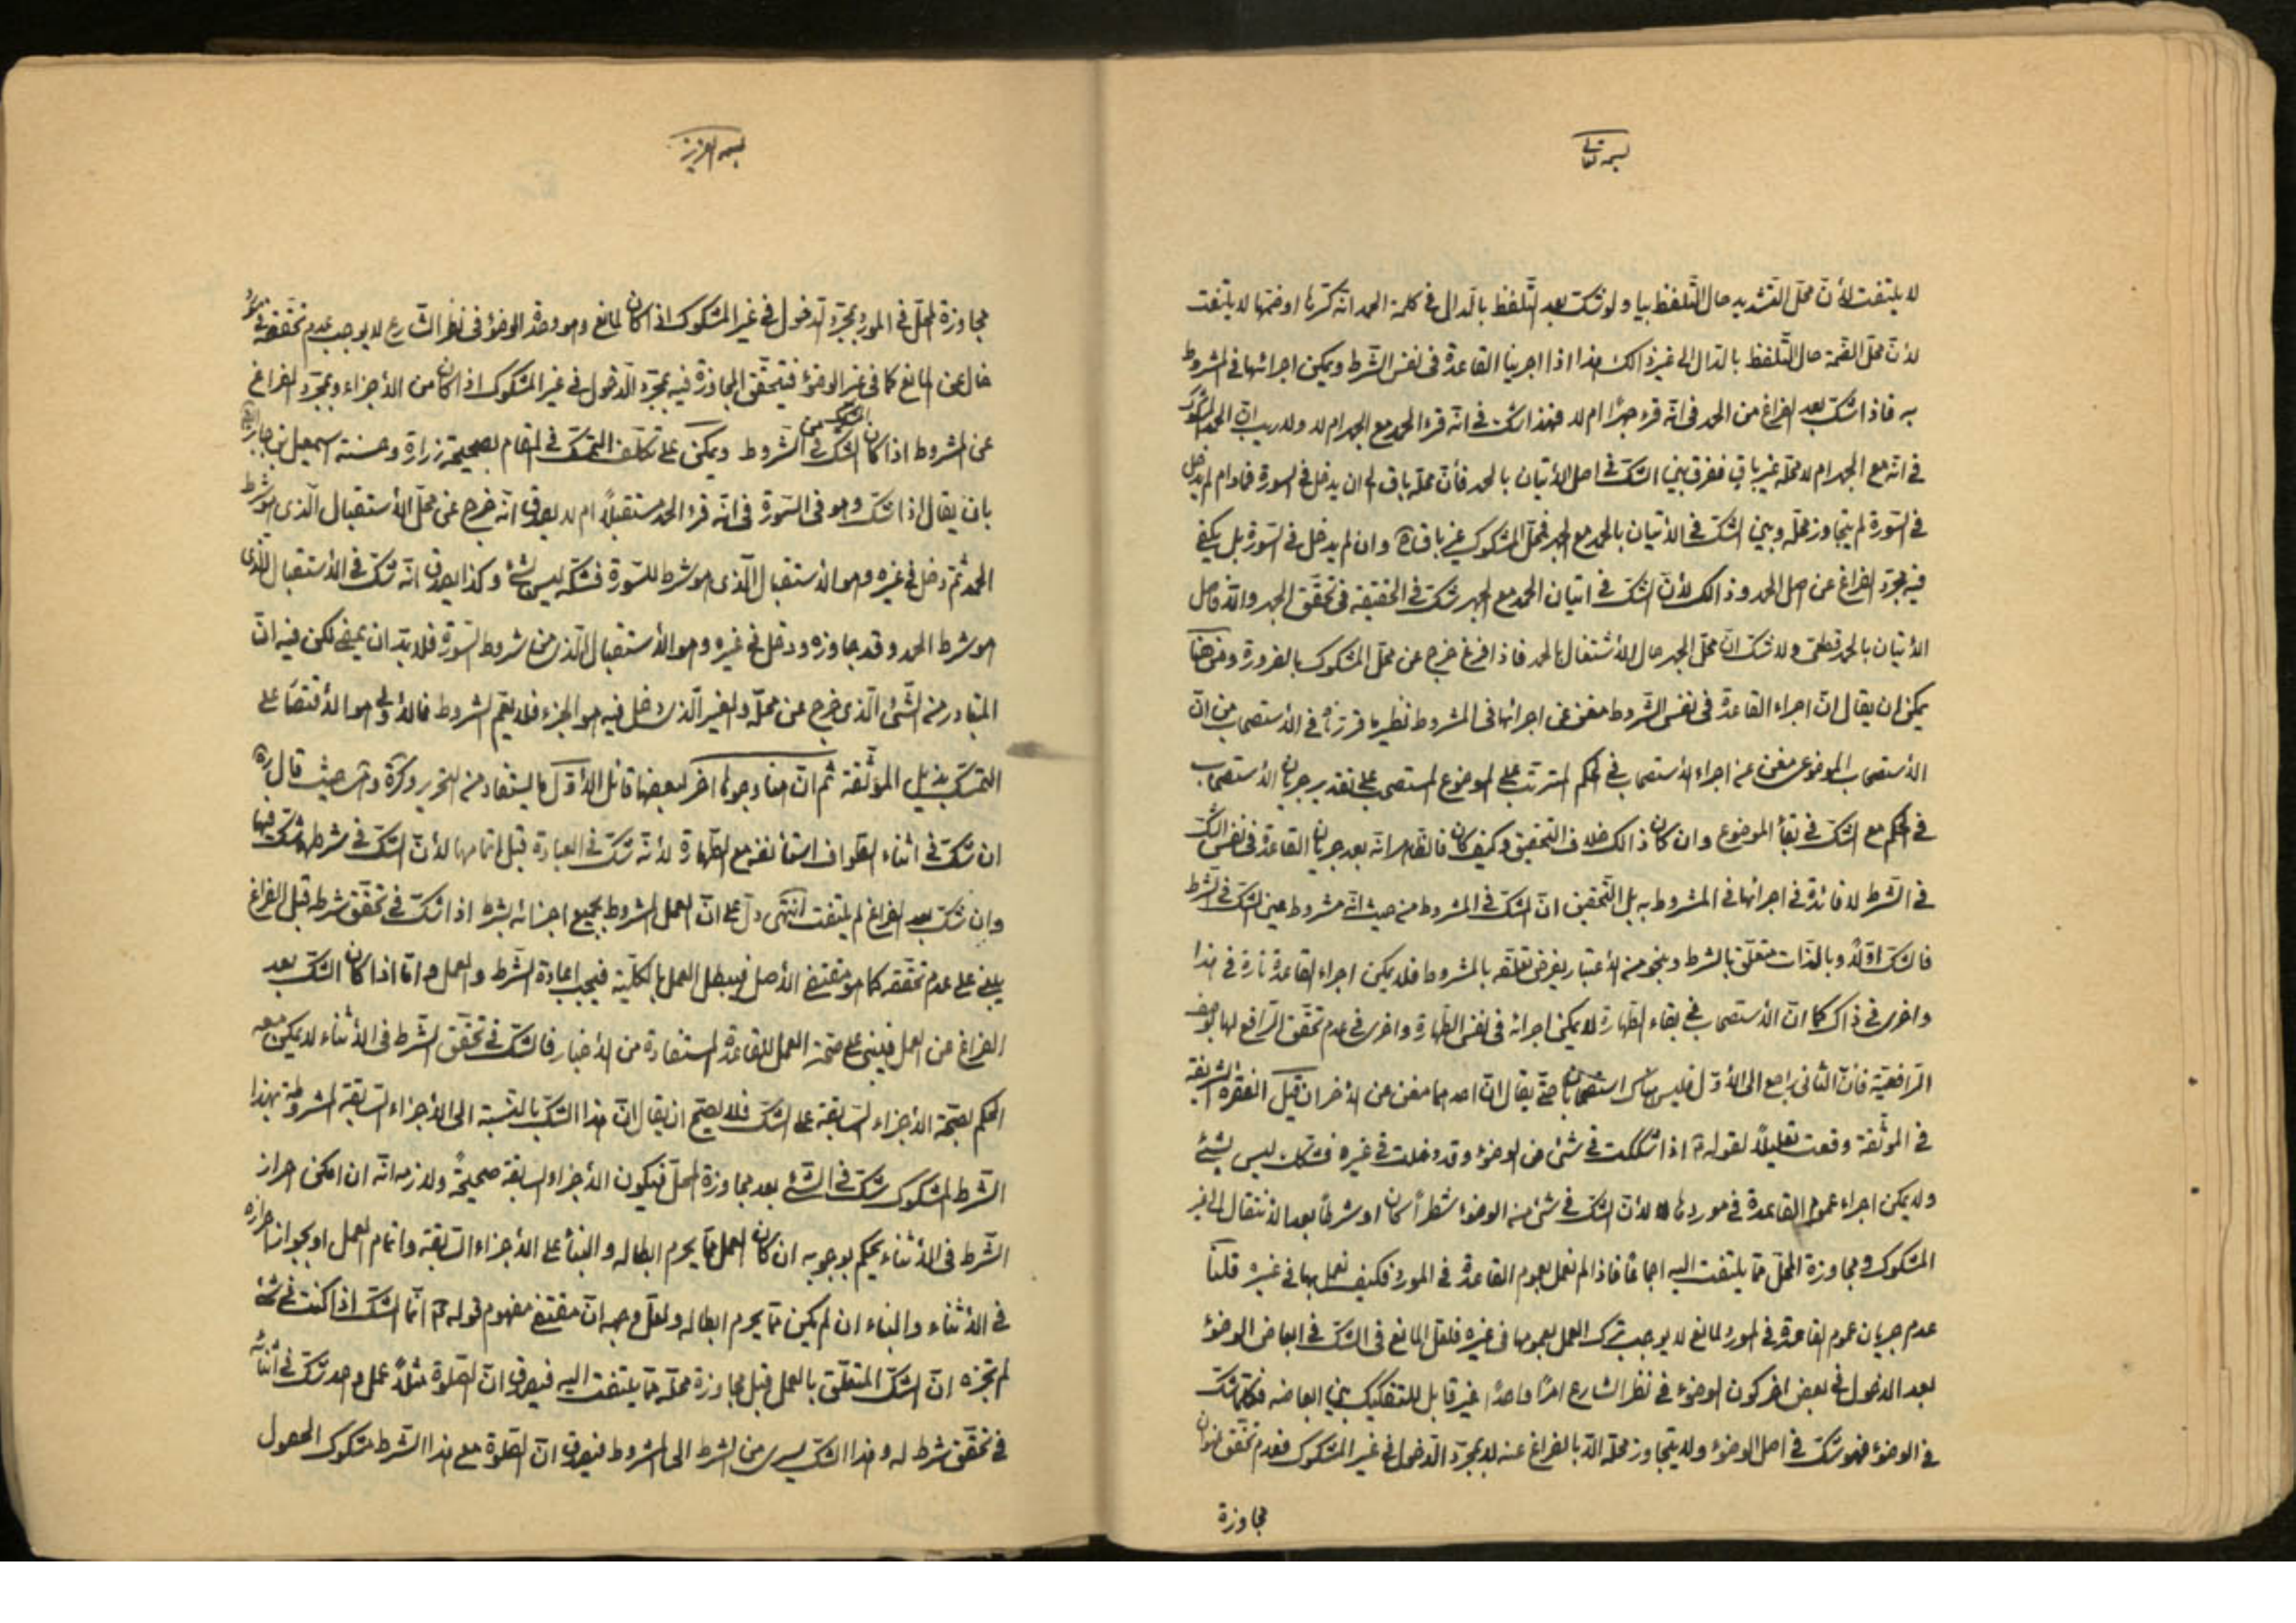 بسمه تعالى
لا يلتفت لأن محل التشديد حال التلفظ بها ولو شك بعد التلفظ بالدال في كلمة الحمد انه كسرها او ضمها لا يلتفت
لأن محل الضمة حال التلفظ بالدال الى غير ذالك هذا اذا اجرينا القاعدة في نفس الشرط ويمكن اجرائها في المشروط
به فاذا شك بعد الفراغ من الحمد في انه قرء جهرًا ام لا فهذا شك في انه قرء الحمد مع الجهر ام لا ولا ريب ان الحمد المشكوك
في انه مع الجهر ام لا محله غير باق ففرق بين الشك في اصل الأتيان بالحمد فأن محله باق الى ان يدخل في السورة فما دام لم يدخل
في السورة لم يتجاوز محله وبين الشك في الأتيان بالحمد مع الجهر فمحل المشكوك غير باق وان لم يدخل في السورة بل يكفي
فيه مجرد الفراغ عن اصل الحمد وذالك لأن الشك في اتيان الحمد مع الجهر شك في الحقيقة في تحقق الجهر والا فاصل
الأتيان بالحمد قطعي ولا شك ان محل الجهر حال الأشتغال بالحمد فاذا فرغ خرج عن محل المشكوك بالضرورة ومن هنا
يمكن ان يقال ان اجراء القاعدة في نفس الشروط مغن عن اجرائها في المشروط نظير ما قررناه في الأستصحاب من ان
الأستصحاب الموضوعي مغن عن اجراء الأستصحاب في الحكم المترتب على الموضوع المستصحب على تقدير جريان الأستصحاب
في الحكم مع الشك في بقأ الموضوع وان كان ذالك خلاف التحقيق وكيف كان فالظاهر انه بعد جريان القاعدة في نفس الشك
في الشرط لا فائدة في اجرائها في المشروط به بل التحقيق ان الشك في المشروط من حيث انه مشروط عين الشك في الشرط
فالشك اوّلًا وبالذات متعلق بالشرط وبنحو من الأعتبار يفرض تعلقه بالمشروط فلا يمكن اجراء القاعدة تارة في هذا
واخرى في ذاك كما ان الأستصحاب في بقاء الطهارة لا يمكن اجرائه في نفس الطهارة واخرى في عدم تحقق الرافع لها بوصف
الرافعية فأن الثاني راجع الى الأول فليس هناك استصحابان حتى يقال ان احدهما مغن عن الأخر ان قيل الفقرة الشريفة
في الموثقة وقعت تعليلًا لقوله اذا شككت في شئ من الوضوء وقد دخلت في غيره فشكك ليس بشيئ
ولا يمكن اجراء عموم القاعدة في موردها لأن الشك في شئ من الوضوء شطرًا كان او شرطًا بعد الأنتقال الى غير
المشكوك ومجاوزة المحل مما يلتفت اليه اجماعًا فاذا لم نعمل بعموم القاعدة في المورد فكيف نعمل بها في غيره قلنا
عدم جريان عموم القاعدة في المورد لمانع لا يوجب ترك العمل بعمومها في غيره فلعل المانع في الشك في ابعاض الوضوء
بعد الدخول في بعض اخر كون الوضوء في نظر الشارع امرًا واحدًا غير قابل للتفكيك بين ابعاضه فكلما شك
في الوضوء فهو شك في اصل الوضوء ولا يتجاوز محله الا بالفراغ عنه لا بمجرد الدخول في غير المشكوك فعدم تحقق عنوان
مجاوزة
بسمه العزيز
مجاوزة المحل في المورد بمجرد الدخول في غير المشكوك اذا كان لمانع وهو وحدة الوضوء في نظر الشارع لا يوجب عدم تحققه في مورد
خال عن المانع كما في غير الوضوء فيتحقق المجاوزة فيه بمجرد الدخول في غير المشكوك اذا كان من الأجزاء وبمجرد الفراغ
عن المشروط اذا كان الشك في الشروط ويمكن على تكلف التمسك في المقام بصحيحة زرارة وحسنة اسمعيل بن جابر
بان يقال اذا شك وهو في السورة في انه قرء الحمد مستقبلًا ام لا يصدق انه خرج عن محل الأستقبال الذي هو شرط
الحمد ثم دخل في غيره وهو الأستقبال الذي هو شرط للسورة فشكه ليس بشئ وكذا يصدق انه شك في الأستقبال الذي
هو شرط الحمد وقد جاوزه ودخل في غيره وهو الأستقبال الذي من شروط السورة فلا بد ان يمضي لكن فيه ان
المتبادر من الشئ الذي خرج عن محله والغير الذي دخل فيه هو الجزء فلا يعم الشروط فالأولى هو الأقتصار على
التمسك بذيل الموثقة ثم ان هنا وجوها اخر لبعضها قائل الأول ما يستفاد من التحرير وكرة حيث قال
ان شك في اثناء الطواف استأنفه مع الطهارة لأنه شك في العبادة قبل اتمامها لأن الشك في شرطها شك فيها
وان شك بعد الفراغ لم يلتفت انتهى دل على ان العمل المشروط بجميع اجزائه بشرط اذا شك في تحقق شرطه قبل الفراغ
يبنى على عدم تحققه كما هو مقتضى الأصل فيبطل العمل بالكلية فيجب اعادة الشرط والعمل واما اذا كان الشك بعد
الفراغ من العمل فيبنى على صحة العمل للقاعدة المستفادة من الأخبار فالشك في تحقق الشرط في الأثناء لا يمكن معه
الحكم بصحة الأجزاء السابقة على الشك فلا يصح ان يقال ان هذا الشك بالنسبة الى الأجزاء السابقة المشروطة بهذا
الشرط المشكوك شك في الشئ بعد مجاوزة المحل فيكون الأجزاء السابقة صحيحة ولازمه انه ان امكن احراز
الشرط في الأثناء يحكم بوجوبه ان كان العمل مما يحرم ابطاله والبنأ على الأجزاء السابقة واتمام العمل او بجواز احرازه
في الأثناء والبناء ان لم يكن مما يحرم ابطاله ولعل وجهه ان مقتضى مفهوم قوله انما الشك اذا كنت في شئ
لم تجزه ان الشك المتعلق بالعمل قبل مجاوزة محله مما يلتفت اليه فيصدق ان الصلوة مثلًا عمل واحد شك في أثنائه
في تحقق شرط له وهذا الشك يسرى من الشرط الى المشروط فيصدق ان الصلوة مع هذا الشرط مشكوك الحصول